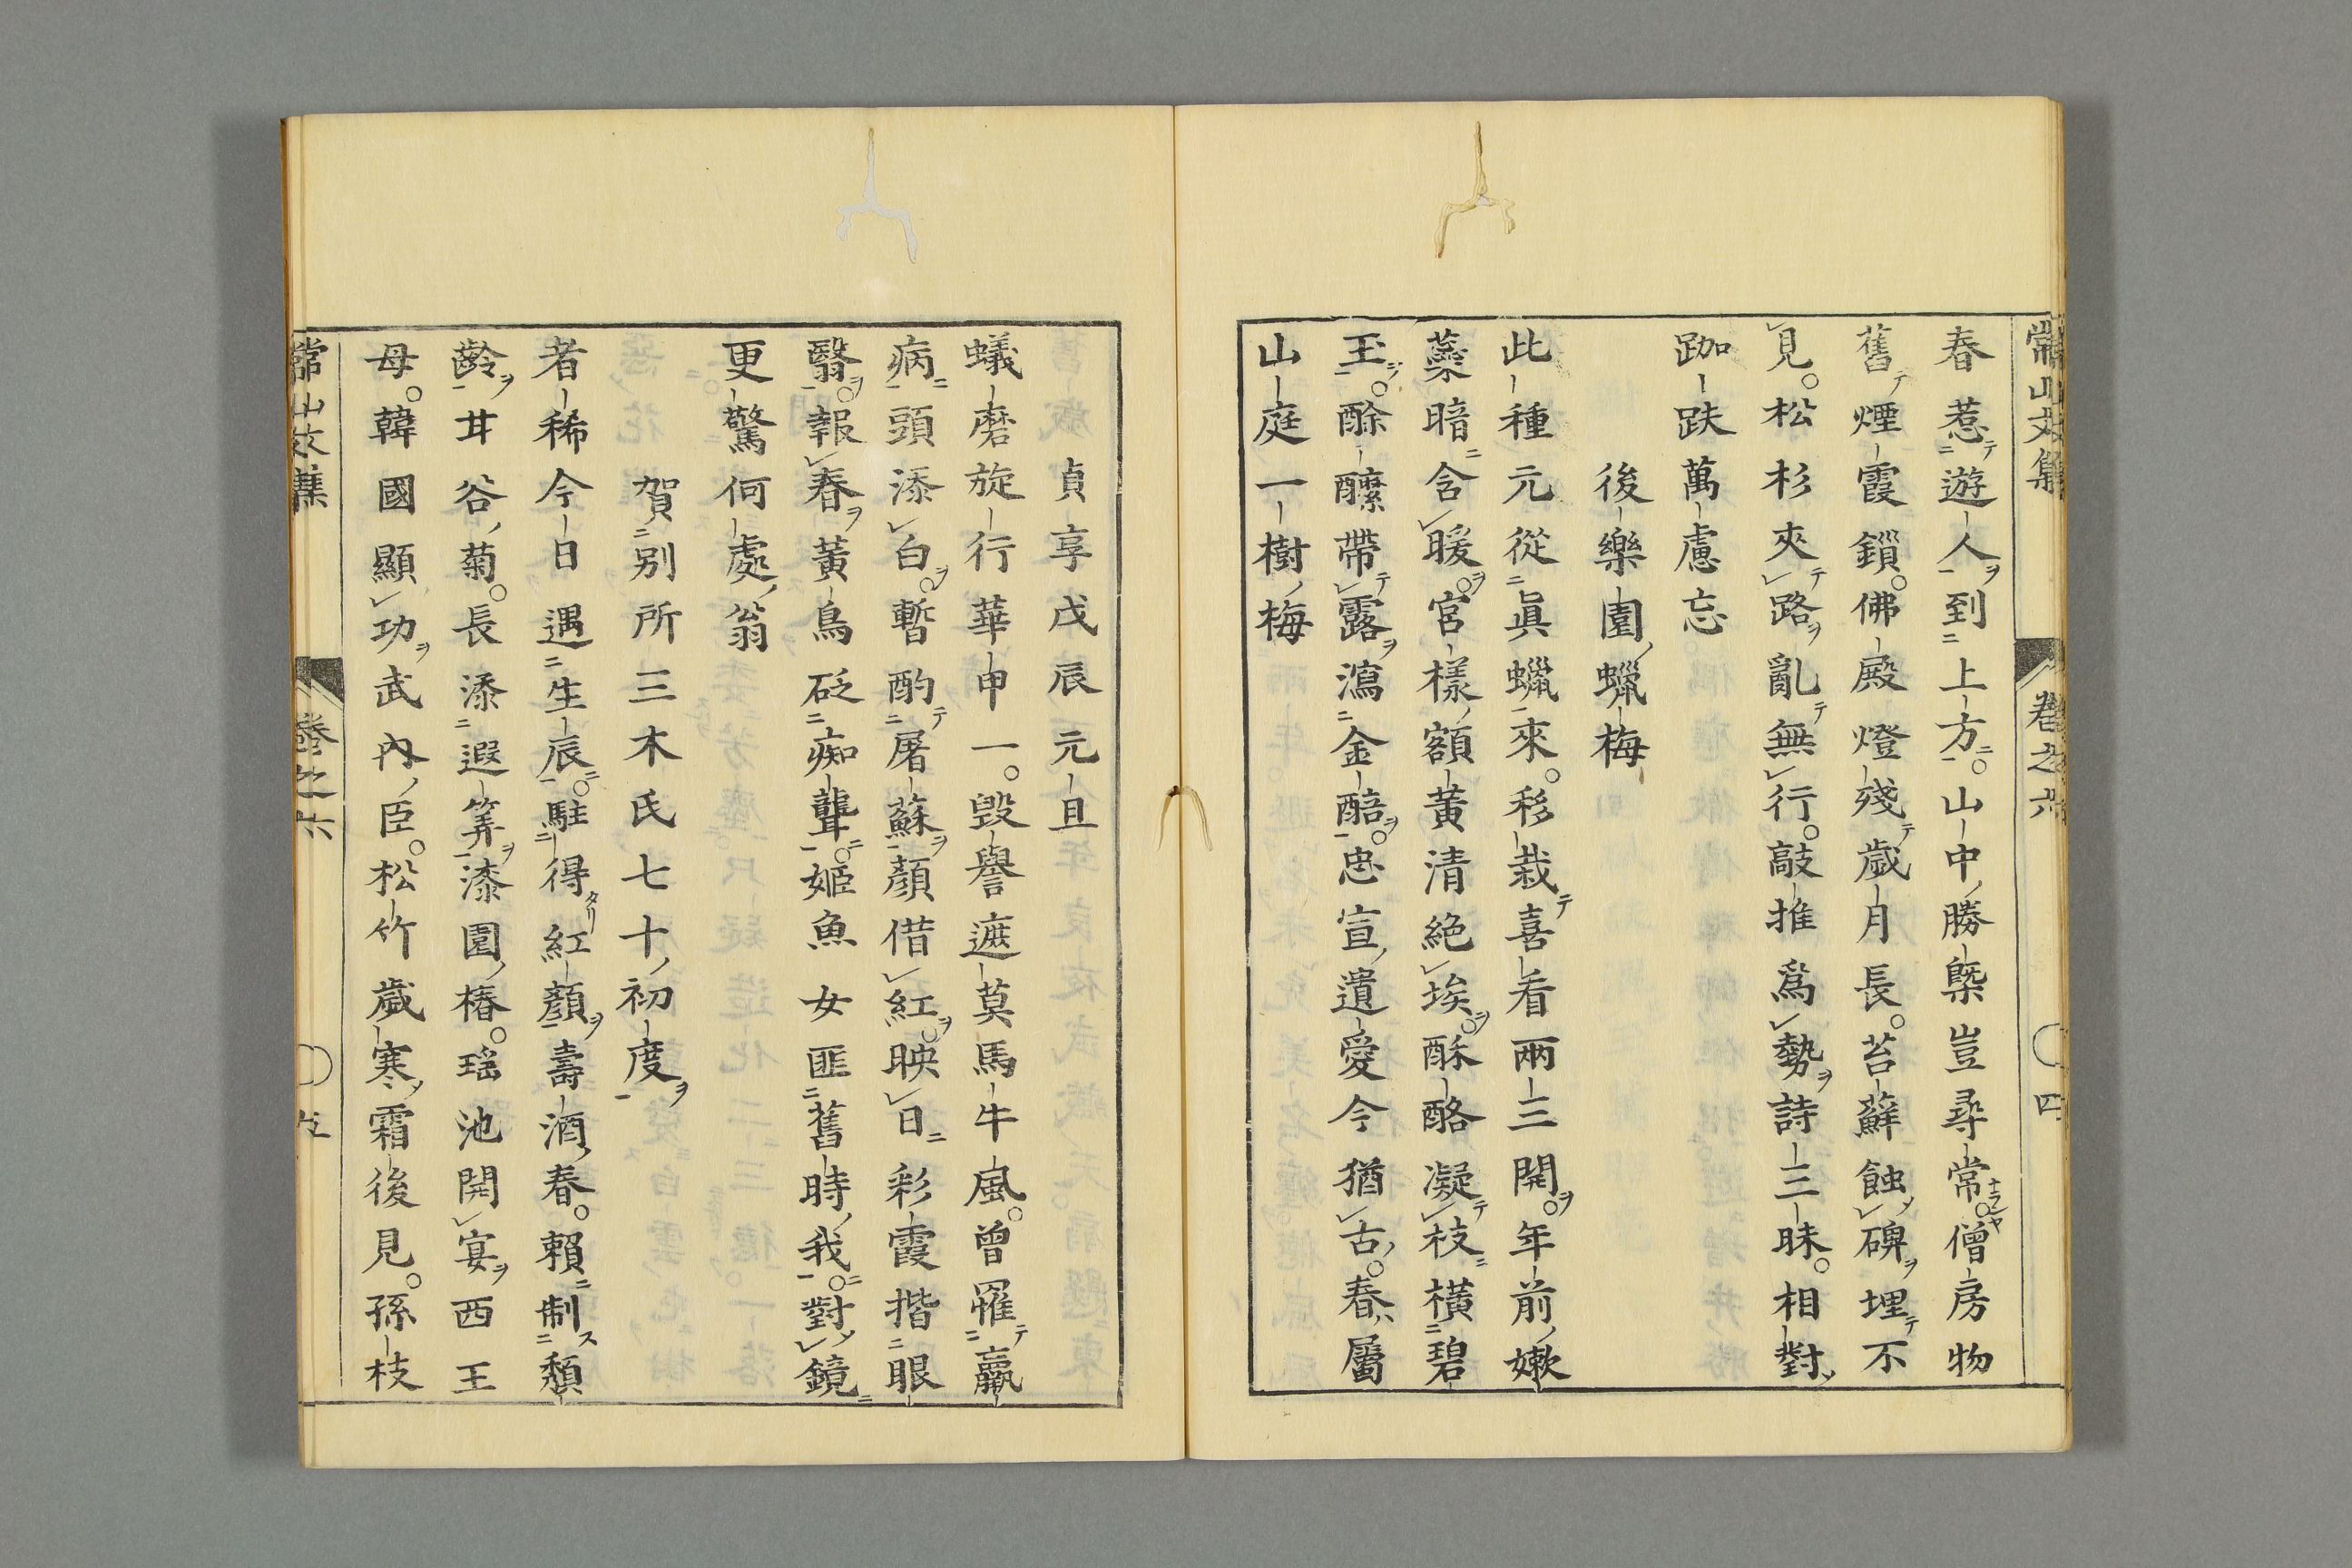 常山文集 卷之六 四
春惹遊人到上方。山中勝槩豈尋常。僧房物
舊煙霞鎖。佛殿燈殘歲月長。苔蘚蝕碑埋不
見。松杉夾路亂無行。敲推爲勢詩三昧。相對
跏趺萬慮忘
後樂園蠟梅
此種元從眞蠟來。移栽喜看兩三開。年前嫩
蘂暗含暖。宮樣額黃清絶埃。酥酪凝枝橫碧
玉。酴醾帶露瀉金醅。忠宣遺愛今猶古。春屬
山庭一樹梅
貞享戊辰元旦
蟻磨旋行華甲一。毀譽遮莫馬牛風。曾罹羸
病頭添白。暫酌屠蘇顏借紅。映日彩霞揩眼
翳。報春黃鳥砭痴聾。姬魚女匪舊時我。對鏡
更驚何處翁
賀別所三木氏七十初度
者稀今日遇生辰。駐得紅顏壽酒春。賴制頽
齡甘谷菊。長添遐筭漆園椿。瑶池開宴西王
母。韓國顯功武內臣。松竹歲寒霜後見。孫枝
常山文集 卷之六